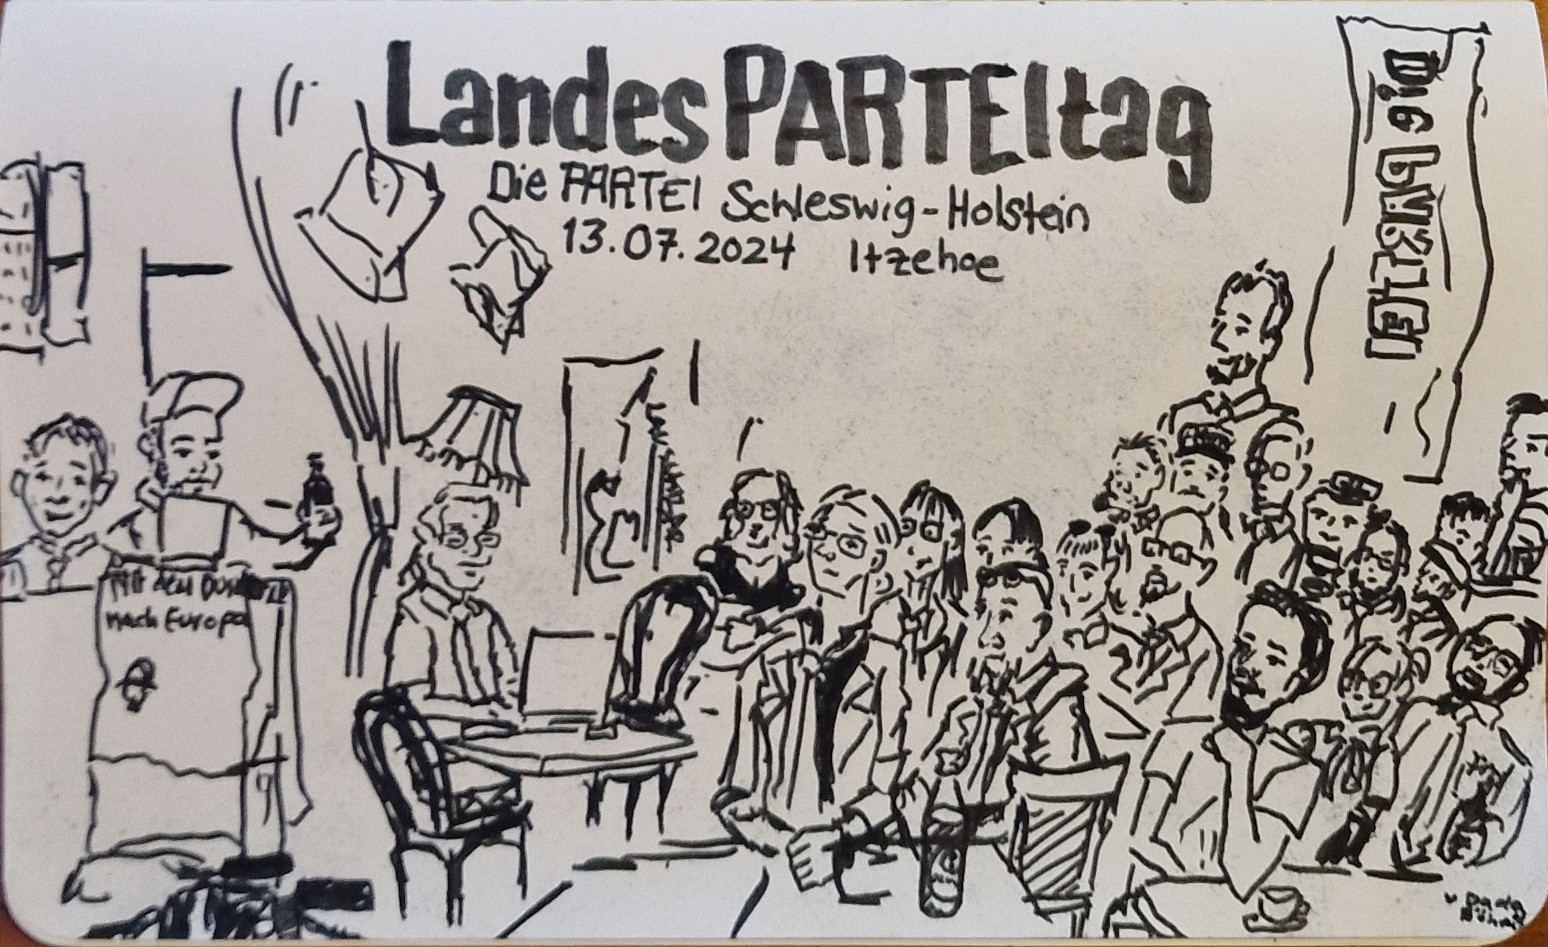 LandesPARTEItag
Die PARTEI Schleswig-Holstein
13.07.2024 Itzehoe
Die PARTEI
Mit dem
nach Europa